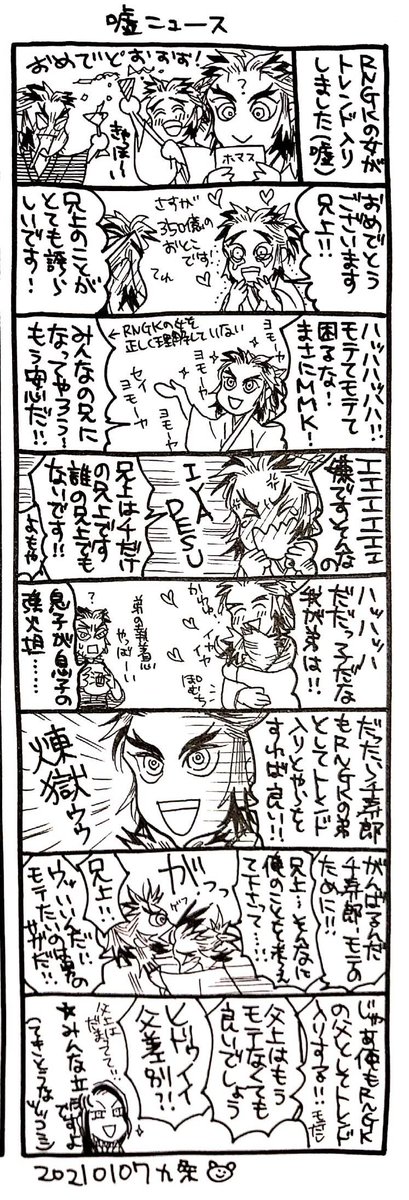 嘘ニュース
RNGKの女が
トレンド入り
しました(嘘)
おめでとおおおお!
?
ホマス
きゃほーい
おめでとう
ございます
兄上!!
さすが
350億の
おとこ
です!
てん
兄上のことが
とても誇ら
しいです!
ハッハッハッハ!!
モテてモテて
困るな!
まさにMMK!
←RNGKの女を
正しく理解していない
ヨモヤー
ヨモヤー
セイ
ヨモヤー
みんなの兄に
なってやろう!
もう安心だ!!
エエエエエエ
嫌ですそんなの
IYA
DESU
兄上は千だけ
の兄上です
誰の兄上でも
ないです!!
よもや
ハッハッハ
だだっ子だな
我が弟は!!
イヤ
イヤ
ぽむっ
弟の執着心
やっばーい
?
酒
息子が息子の
強火担……
だったら千寿郎
もRNGKの弟
としてトレンド
入りとやらを
すれば良い!!
煉獄ゥゥ
がんばるんだ
千寿郎、モテの
ために!!
がっ
兄上…そんなに
俺のことを考え
て下さって…
兄上…!
ウッいいんだ…
モテたいのは男の
サガだ!!
じゃあ俺もRNGK
の父としてトレンド
入りする!!
モテたい
父上はもう
モテなくても
良いでしょう
ヒドゥイイ
父差別!?
父上は
だまってて…!
☆みんな立派ですよ
(てきとうなツッコミ)
20210107九条